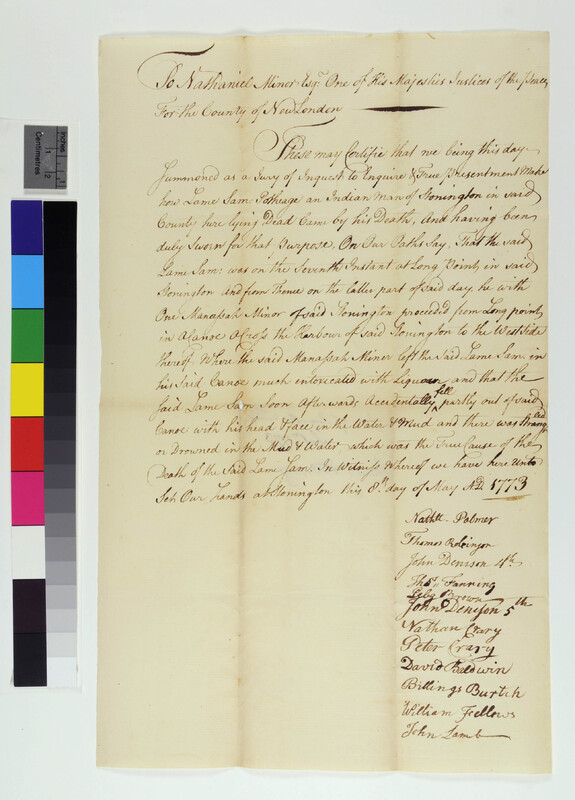 inches
1
2
Centimetres
To Nathaniel Minor Esqr. One of His Majesties Justices of the Peace
For the County of New London
These may Certifie that we being this day
Summoned as a Jury of Inquest to Enquire & True Presentment Make
how Lame Sam Potheage an Indian Man of Stonington in said
County here lying Dead Came by his Death, And having been
duly Sworn for that Purpose, On Our Oaths Say, That the said
Lame Sam: was on the Seventh Instant at Long Point, in said
Stonington and from thence on the latter part of said day he with
One Manassah Minor of said Stonington proceeded from Long point
in a Canoe aCross the Harbour of said Stonington to the West side
thereof. Where the said Manassah Minor left the Said Lame Sam in
his Said Canoe much intoxecated with Liquor and that the
Said Lame Sam Soon Afterwards Accedentally fell partly out of said
Canoe with his head & face in the Water & Mud and there was Strangled
or Drowned in the Mud & Water which was the True Cause of the
Death of the Said Lame Sam. In Witness Whereof we have here Unto
Set Our hands at Stonington this 8th day of May AD. 1773
Nathll Palmer
Thomas Robinson
John Denison 4th
Thos. Fanning
Brown
John Denison 5th
Nathan Crary
Peter Crary
David Baldwin
Billings Burtch
William Fellows
John Lamb